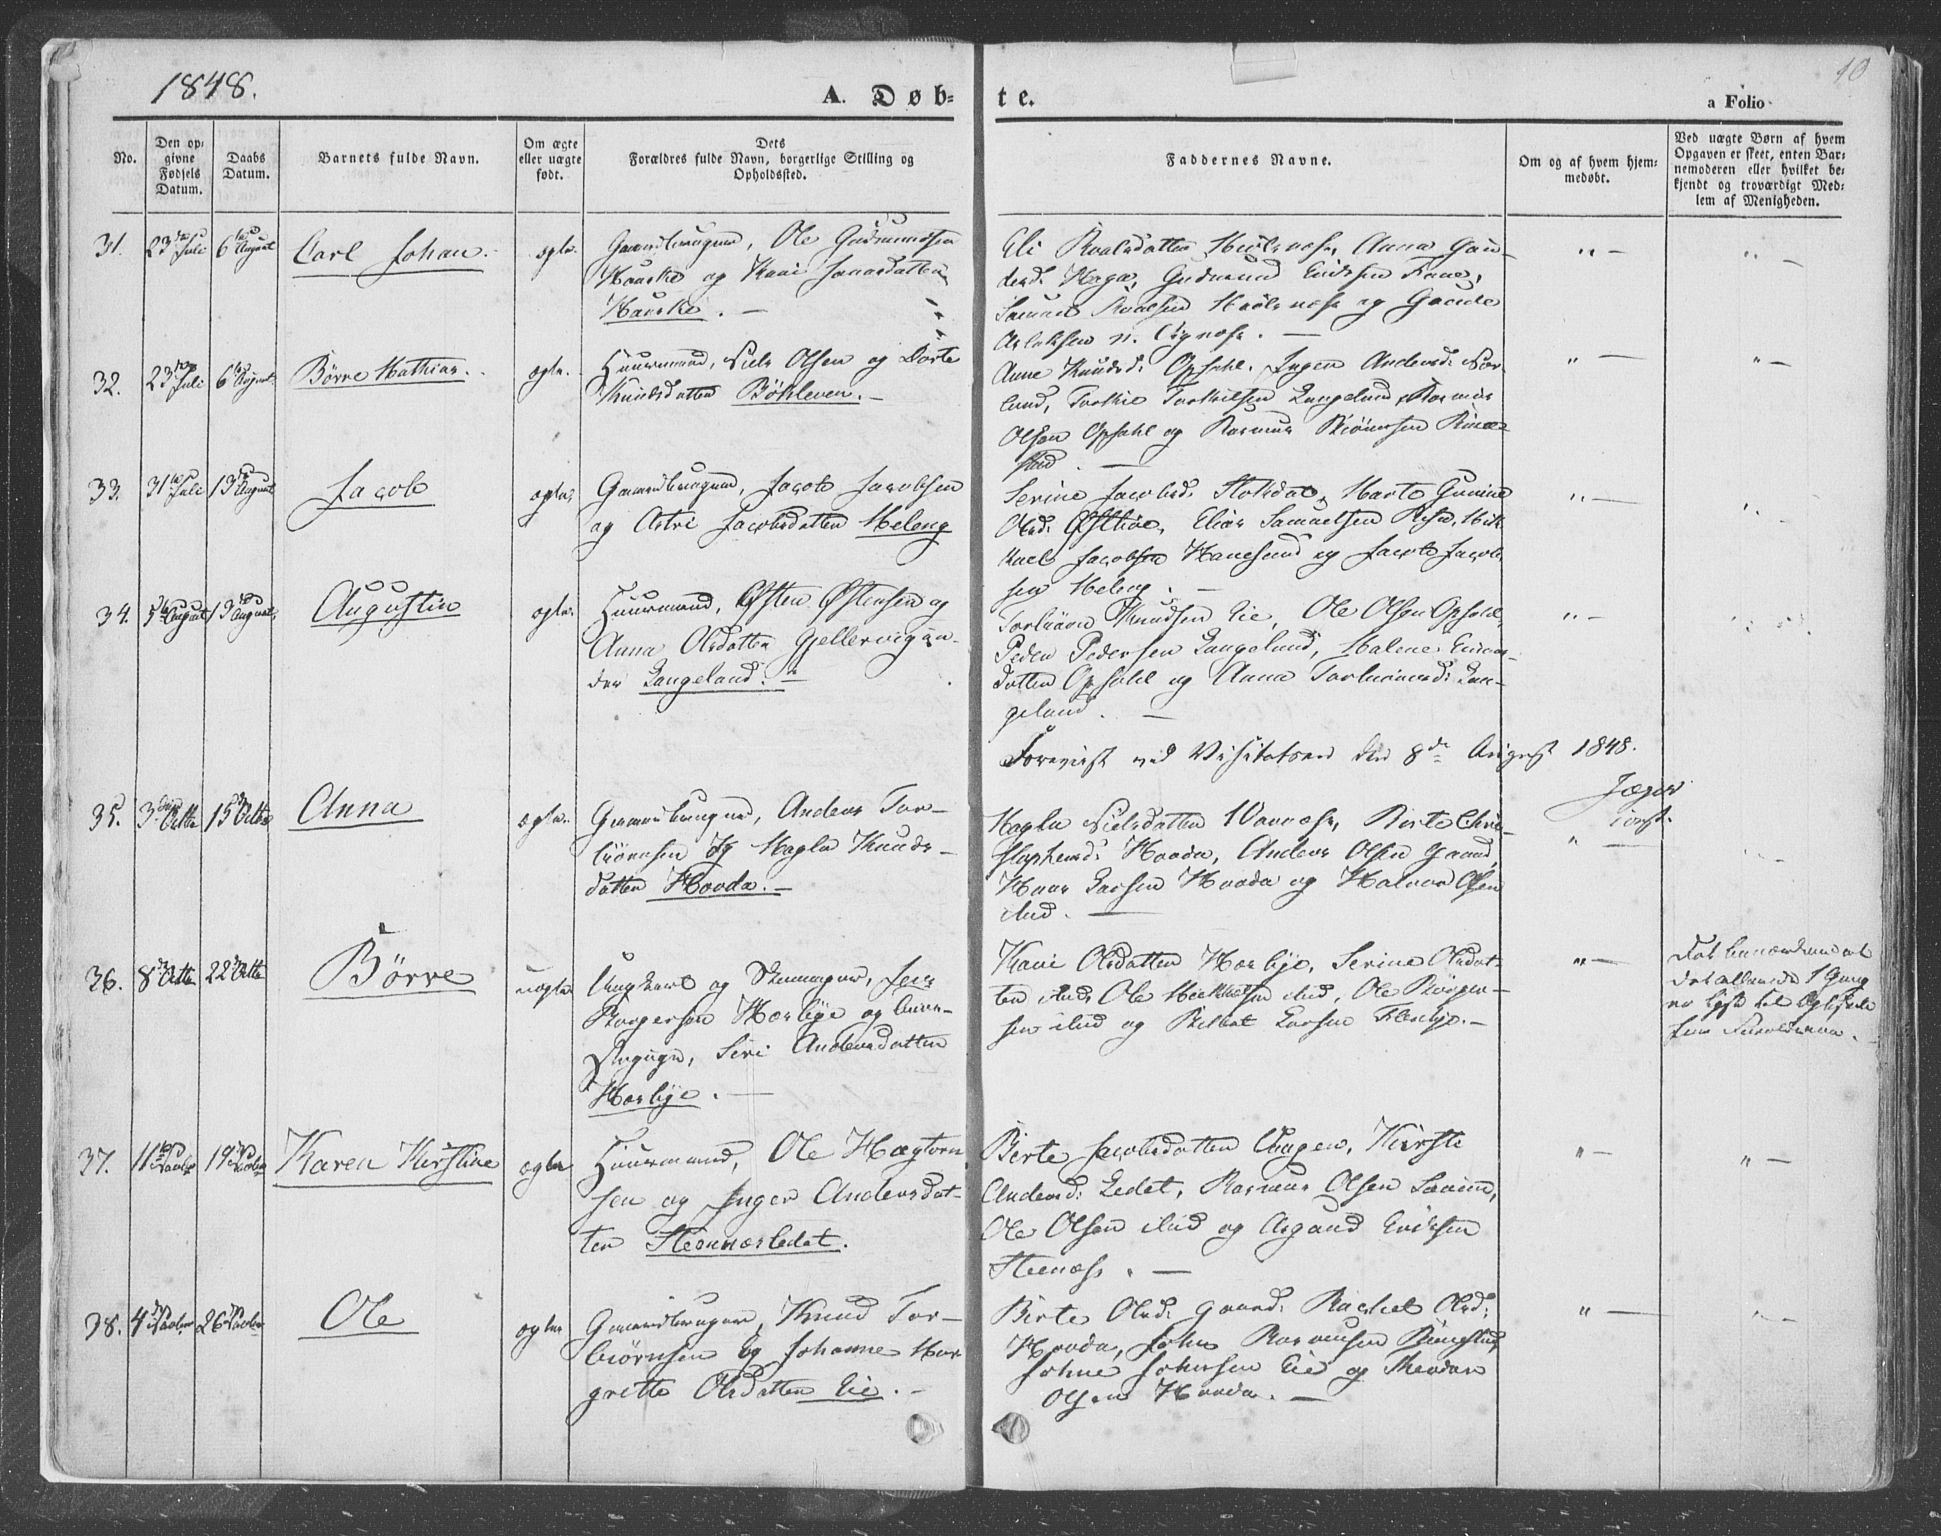 1848.
A. Døb=
te.
a Folio
40
No.
Den op=
givne
Fødsels
Datum.
Daabs
Datum.
Barnets fulde Navn.
Om ægte
eller uægte
født.
Dets
Forældres fulde Navn, borgerlige Stilling og
Opholdssted.
Faddernes Navne.
Om og af hvem hjem=
medøbt.
Ved uægte Børn af hvem
Opgaven er skeet, enten Bar=
nemoderen eller hvilket be=
kjendt og troværdigt Med=
lem af Menigheden.
31.
23de Juli
6te August
Carl Johan.
ægte.
Gaardbruger, Ole Gudmundsen
Hauske og Kari Jonasdatten
Hauske. —
Eli Roalsdatten Hiølsnæss, Anna Gun-
dersd: Haga, Gudmund Eriksen
Samuel Roalsen Hiølsnæss og Gunde
Aslaksen n. Vignæss. —
32.
23de Juli
6te August
Børre Mathias.
ægte.
Huusmand, Niels Olsen og Dorte
Knudsdatten Böhleven. —
Anne Knudsd: Opsahl, Ingen Andersd: Nor-
lund, Torkil Torkilsen Langeland, Rasmus
Olsen Opsahl og Rasmus Biörnsen Ring-
stad. —
33.
31te Juli
13de August
Jacob
ægte.
Gaardbruger, Jacob Jacobsen
og Astri Jacobsdatten Meleng
Serine Jacobsd: Stoksdal, Marte Gurine
Olsd: Østhüs, Elias Samuelsen, Mik-
kael Jacobsen Hanesund og Jacob Jacob-
sen Meleng. —
34.
5te August
13de August
Augustin
ægte.
Huusmand, Østen Østensen og
Anna Olsdatten Gjellervigun-
der Langeland. —
Torbiörn Knudsen Eie, Ole Olsen Opsahl,
Peder Pedersen Langeland, Malene Einar-
datten Opsahl og Anna Torbiörnsd: Lan-
geland. —
Forevist ved Visitatsen den 8de August 1848.
Jæger
const.
35.
3die Octbr
15de Octbr
Anna
ægte.
Gaardbruger, Anders Tor-
biörnsen og Magla Knuds-
datten Hovda. —
Magla Nielsdatten Vannæss, Berte Chri-
stophersd: Hovda, Anders Olsen Gaard,
Hans Larsen Hovda og Halvor Olsen
ibid. —
36.
8de Octbr
22de Octbr
Børre
uægte
Ungkarl og Skomager, Jens
Borgersen Horbye og
Pigen, Siri Andersdatten
Horbye. —
Kari Olsdatten Horbye, Serine Olsdat-
ten ibid, Ole Mikkelsen ibid, Ole Börger-
sen ibid og Larsen Fleskje. —
Det bemærkes at
det allerede 1 Gang
er lyst til Ægteskab
for Forældrene.
37.
11te Novbr
19de Novbr
Karen Kirstine
ægte
Huusmand, Ole Hægtorn
sen og Inger Andersdat-
ten Steennæsledet.
Berte Jacobsdatten Vaagen, Kirsti
Andersd: Ledet, Rasmus Olsen,
Ole Olsen ibid og Asgaud Eriksen
Steenæss. —
38.
4de Novbr
26de Novbr
Ole
ægte
Gaardbruger, Knud Tor-
biörnsen og Johanne Mar-
grette Olsdatten Eie. —
Berte Olsd: Gaard, Rachel Olsd:
Hovda, John Rasmusen Ringstad,
Johne Johnsen Eie og Theodor
Olsen Hovda. —